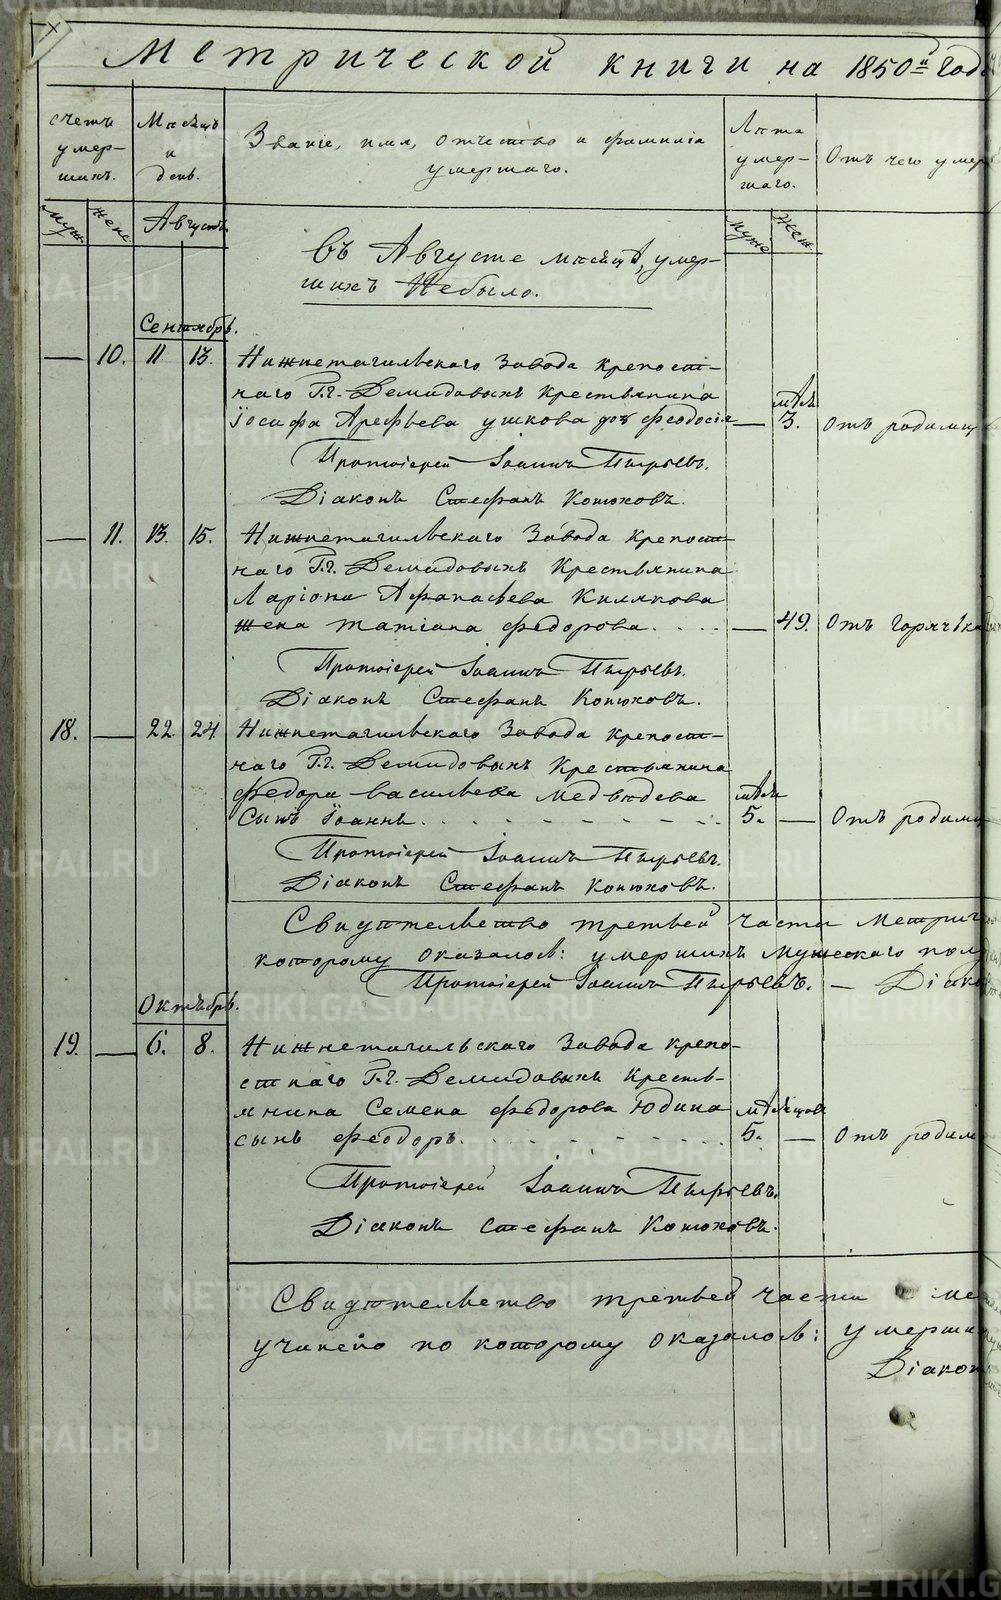 Метрической книги на 1850й годъ
Счетъ умер-шихъ.
Мѣсяцъ и день.
Званіе, имя, отчество и фамилія умершаго.
Лѣта умер-шаго.
Отъ чего умер
Муж. Женс Августъ. Муже Жен
Въ Августѣ мѣсяцѣ, умер-
шихъ Небыло.
Сентябрь.
— 10. 11 13. Нижнетагильскаго Завода крепост-
наго Г.г. Демидовыхъ Крестьянина
Іосафа Арефьева Ушкова дочь Феодосія — мѣся. 3. Отъ родимца
Протоіерей Іоаннъ Пырьевъ.
Діаконъ Стефанъ Конюховъ.
— 11. 13. 15. Нижнетагильскаго Завода Крепост-
наго Г.г. Демидовыхъ Крестьянина
Ларіона Афанасьева Килякова
жена Татіана Федорова. . . . — 49. Отъ Горячки
Протоіерей Іоаннъ Пырьевъ.
Діаконъ Стефанъ Конюховъ.
18. — 22 24 Нижнетагильскаго Завода крепост-
наго Г.г. Демидовыхъ Крестьянина
Федора Васильева Медвѣдева
Сынъ Іоаннъ. . . . . . . . . . мѣся 5. — Отъ родимц
Протоіерей Іоаннъ Пырьевъ.
Діаконъ Стефанъ Конюховъ.
Свидѣтельство третьей части Метрич
которому оказалось: умершихъ Мужескаго пола
Протоіерей Іоаннъ Пырьевъ. — Діако
Октябрь.
19. — 6. 8. Нижнетагильскаго Завода крепо-
стнаго Г.г. Демидовыхъ Кресть-
янина Семена Федорова Юдина
сынъ Феодоръ. . . . . . . . . . мѣсяцовъ 5. — Отъ родим
Протоіерей Іоаннъ Пырьевъ.
Діаконъ Стефанъ Конюховъ.
Свидѣтельство третьей части ме
учинено по которому оказалось: умерши
Діакон
METRIKI.GASO-URAL.RU